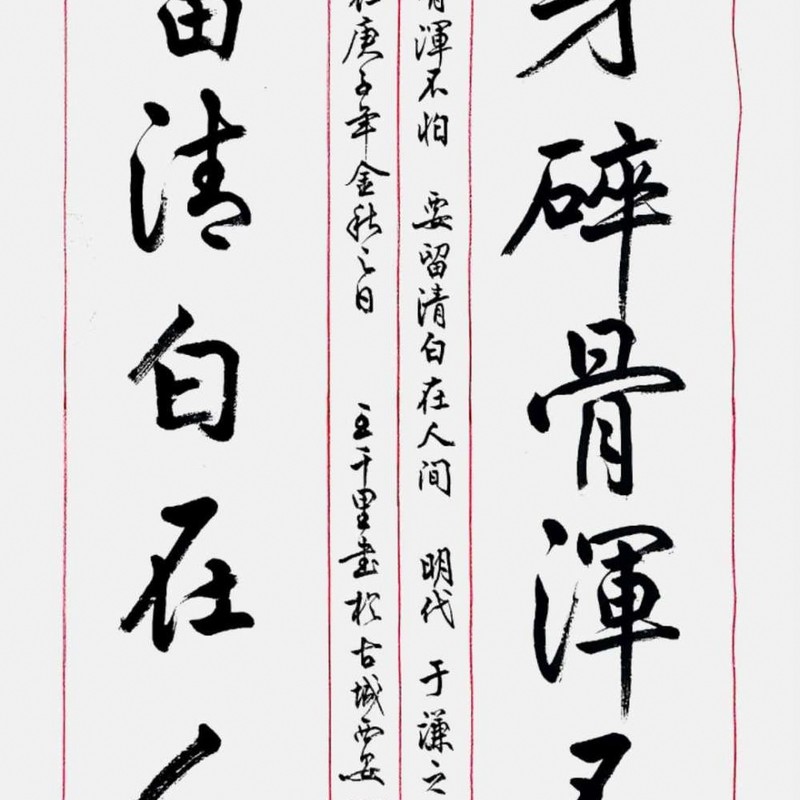 身碎骨渾不
骨渾不怕 要留清白在人间 明代 于謙之
庚子年金秋之日 王千里書於古城西安
留清白在人